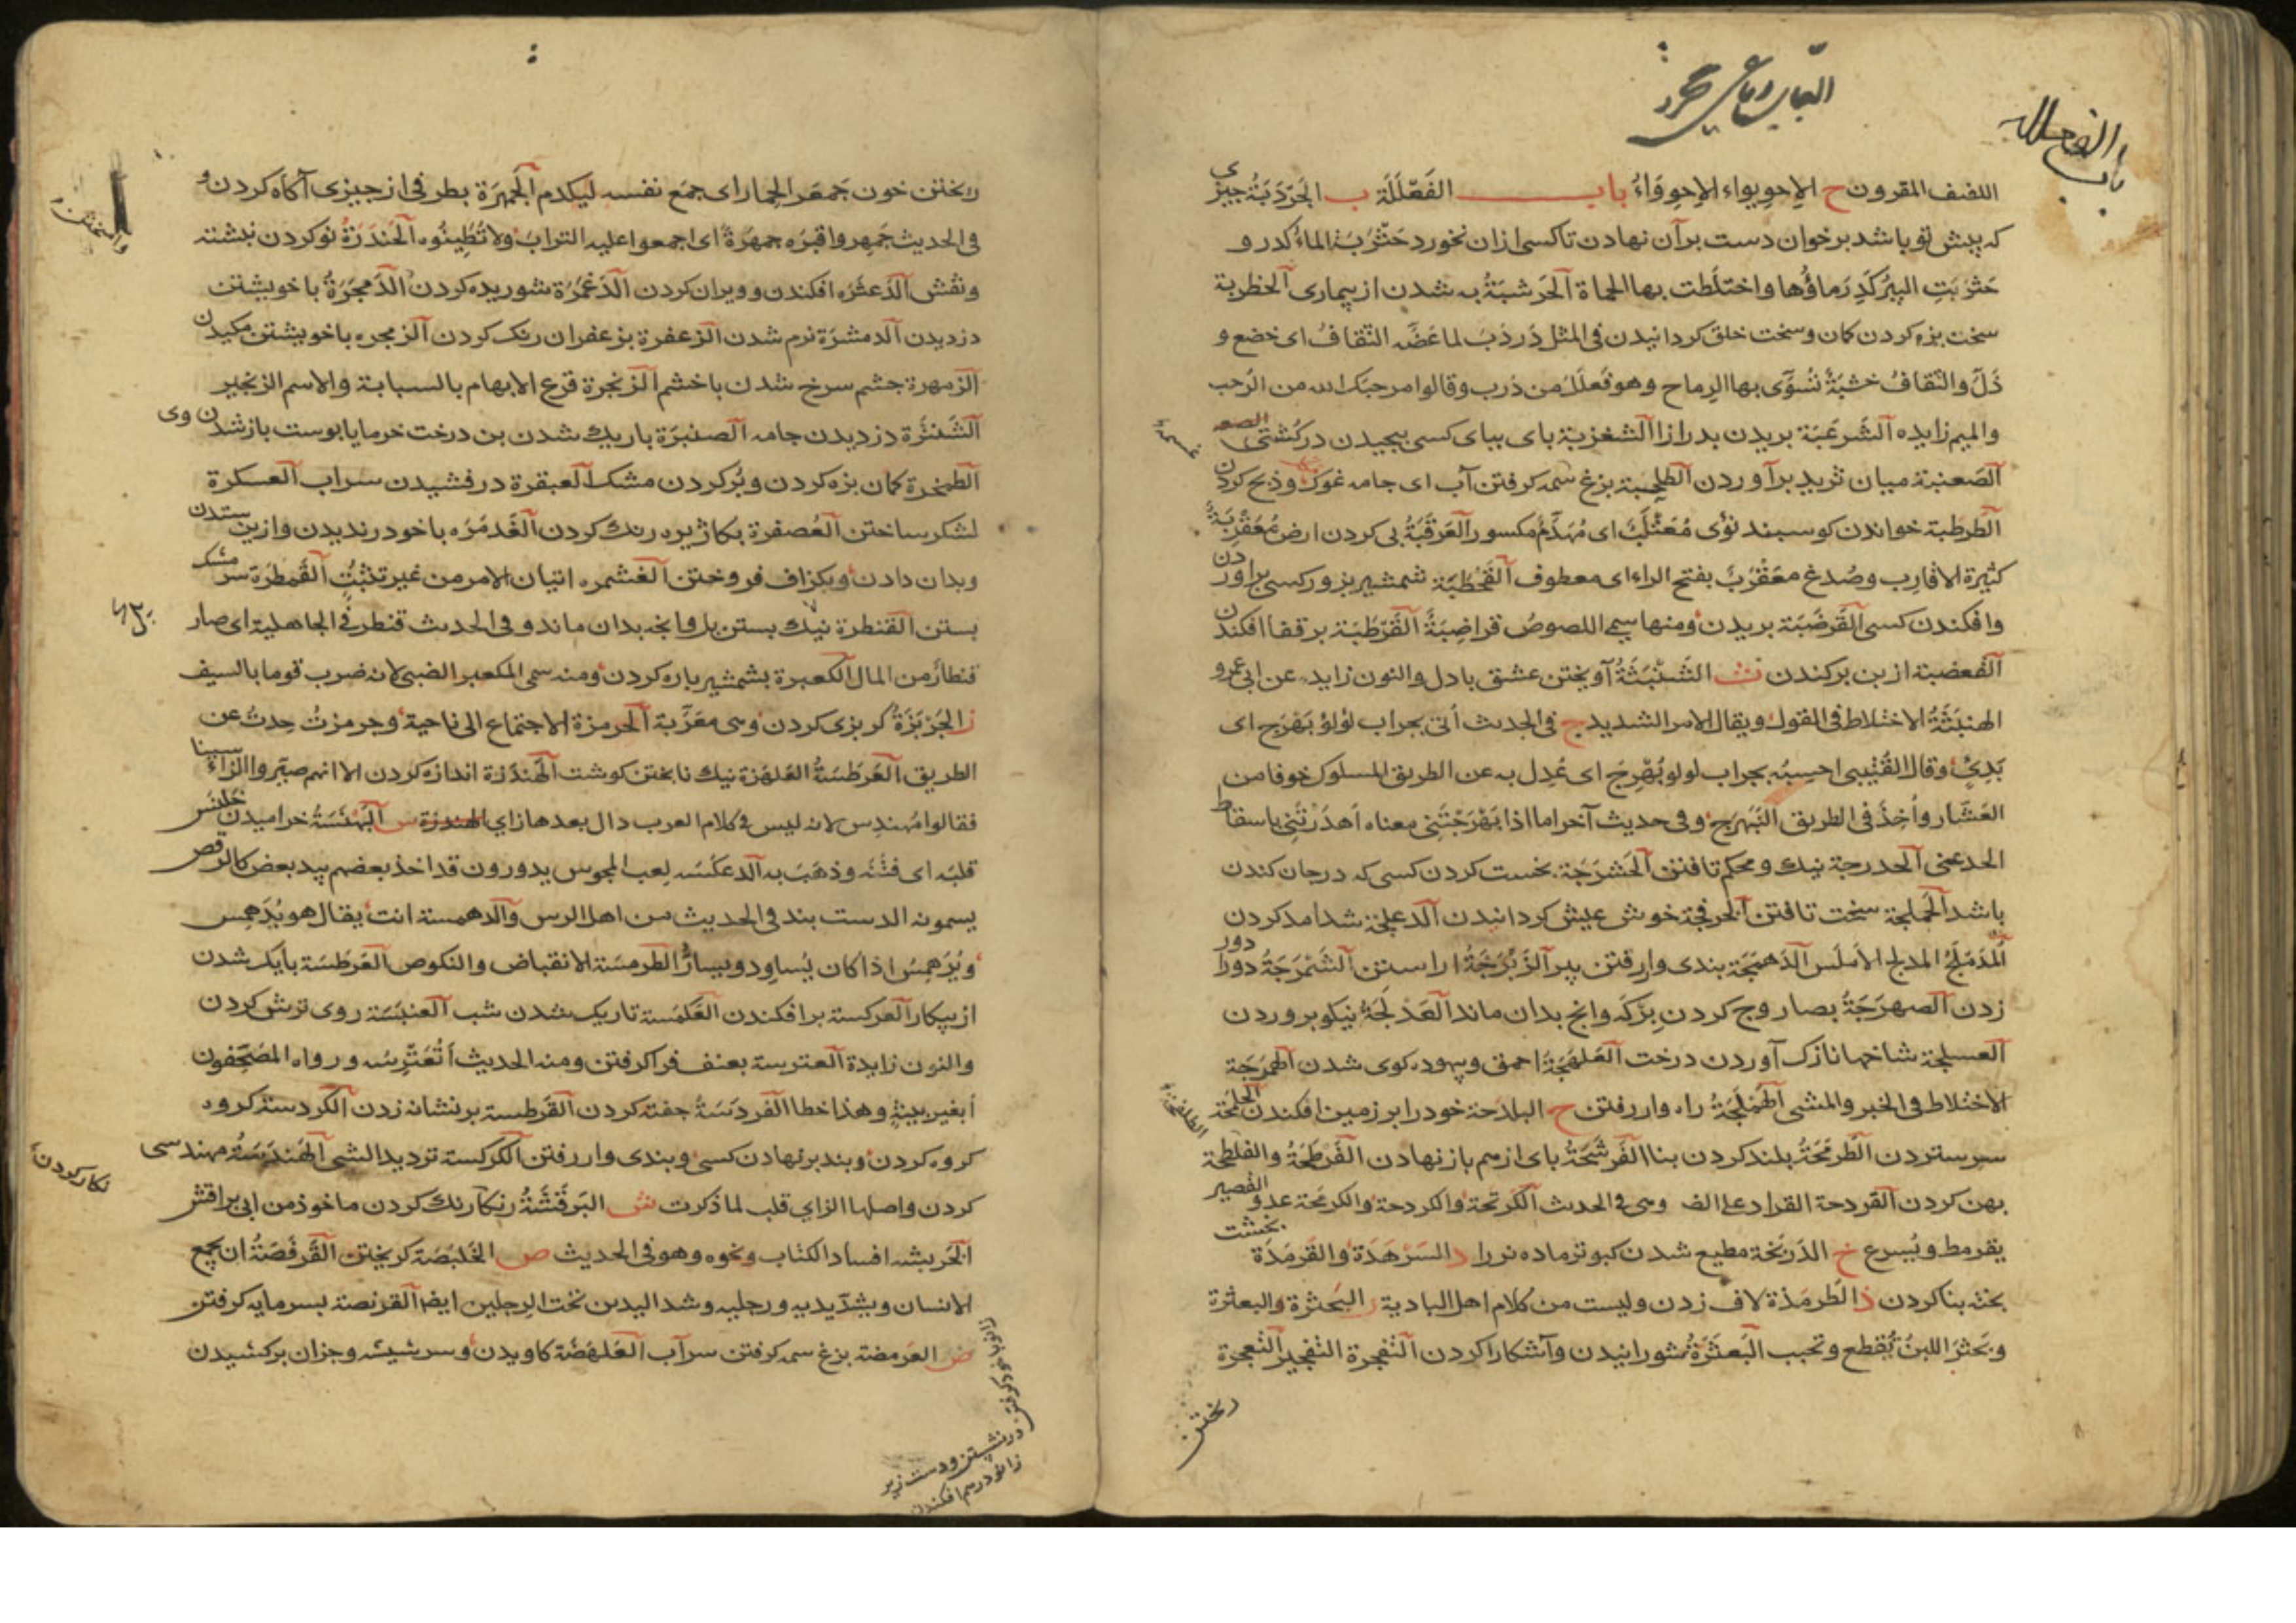 باب الفعللة
اللفيف المقرون ح الاِحوِيواء الاِحوِوَاءُ باب الفَعْلَلَة ب الجَرْدَبَةُ چیزی
که پیش تو باشد بر خوان دست بر آن نهادن تا کسی ازان نخورد حَثْرَبَة الماء کدر و
حَثْرَبَتِ البِئرُ کَدِرَ ماؤُها واختلَطت بها الحماة الحَرشَبَةُ به شدن از بیماری الحظربة
سخت بزه کردن کمان و سخت خلق کردانیدن فی المثل دَردَبَ لما عَضَّه الثّقافُ ای خضع و
ذَلَّ والثّقافُ خشبَةٌ تُسَوَّی بها الرِماح وهو فَعلَلَ من دَرِب وقالوا مرحبَک الله من الرَحب
والمیم زایده الشَرعَبَة بریدن بدرازا الشغزبیة پای بپای کسی پیچیدن در کُشتی
الصَعنبَة میان ثرید بر آوردن الطحلبة بزغ سمه کرفتن آب ای جامه غوک وذبح کردن
الطرطبة خواندن کوسبند نُؤْی مُعَثْلَبٌ ای مُهَدَّمٌ مکسور العَرقَبَةُ پی کردن ارض مُعَقْرِبَةٌ
کثیرة الاقارِب وصُدغ معَقْرَبٌ بفتح الراء ای معطوف القَحْطَبَة شمشیر بزور کسی براوردن
وافکندن کسی القَرضَبَة بریدن ومنها سمی اللصوصُ قراضِبَةً القَرْطَبَة بر قفا افکندن
القعضبة از بن برکندن ث الشَنْبَثَةُ آویختن عشق با دل والنون زایده عن ابی عمرو
الهنبَثَةُ الاختلاط فی القول ویقال الامر الشدید ج فی الحدیث أتی بجراب لؤلؤ بَهْرَج ای
بَدِیٔ وقال القُتَیبی احسِبُه بجراب لولو بُهْرِجَ ای عُدِل به عن الطریق المسلوک خوفا من
العَشّار وأُخِذَ فی الطریق النَبَهرَج وفی حدیث آخر اما اذا بَهْرَجْتَنِی معناه أهدَرْتَنِی باسقاط
الحد عنی الحدرجة نیک و محکم تافتن الحَشرَجَة بخست کردن کسی که در جان کندن
باشد الحَملَجة سخت تافتن الخرفجة خوش عیش کردانیدن الدعلجة شد آمد کردن
المُدَمْلَجُ المدلج الاَملَس الدَهمَجَة بندی وار رفتن پیر الزَبْرَجَةُ اراستن الشَمْرَجَةُ دورا دور
زدن الصهرَجَةُ بصاروج کردن بِرْکَه وانچ بدان ماند العَذْلَجَةُ نیکو پروردن
العسلجة شاخها نازک آوردن درخت العَلهَجَةُ احمق وبیهوده کوی شدن الهمرَجَة
الاختلاط فی الخبر والمشی الهَملَجَةُ راه وار رفتن ح البلدَحة خود را بر زمین افکندن الجلمَحَة
سر ستردن الطَرمَحَةُ بلند کردن بنا الفَرشَحَةُ پای از هم باز نهادن الفَرطَحَةُ والفلطحَة
پهن کردن القردحة القرار علی الف وهی فی الحدیث الکَرتَحة والکردحة والکرمَحة عدو القصیر
یقرمط ویُسرع خ الدَربَخة مطیع شدن کبوتر ماده نر را د السَرْهَدَة والقَرمَدَة بخشت
پخته بنا کردن ذ الطَرمَذة لاف زدن ولیست من کلام اهل البادیة ر البَحثرة والبعثرة
وبَحثَرَ اللبنُ یُقطع وتحبب البَعثَرَةُ شورانیدن وآشکارا کردن الثَفجرة التَفجیر الثَعجرة
ریختن
ریختن خون جَمعَر الحِمار ای جمَع نفسه لیکدم الجَمهَرَة بطرفی از چیزی آکاه کردن و
فی الحدیث جَمهِروا قبَره جمهَرَةً ای اجمعوا علیه الترابَ ولا تُطَیِنُوه الحَندَرَةُ نو کردن نبشته
ونقش الدَعثَرَه افکندن و ویران کردن الدَغمَرَة شوریده کردن الدَمجَرَةُ با خویشتن
دزدیدن الدمشرَة نرم شدن الزعفرة بزعفران رنک کردن الزمجره با خویشتن مکیدن
الزمهرة چشم سرخ شدن با خشم الزنجرة قرع الابهام بالسبابة والاسم الزنجیر
الشَنتَرة دزدیدن جامه الصنبَرَة باریک شدن بن درخت خرما یا پوست باز شدن وی
الطمحرة کمان بزه کردن وپُر کردن مشک العبقرة درفشیدن سراب العسکرة
لشکر ساختن العُصفرة بکاژیره رنک کردن الغَدمَرَه با خود رندیدن وازین ستدن
وبدان دادن وبکزاف فروختن الغشمره اتیان الامر من غیر تثبُّت القَمطَرَة سر مشک
بستن القَنطرة نیک بستن پل وانچه بدان ماند و فی الحدیث قنطر فی الجاهلیة ای صار
قنطار من المال الکعبرة بشمشیر پاره کردن ومنه سمی المکعبر الضبی لانه ضرب قوما بالسیف
ز الجَربَزَةُ کربزی کردن وهی معرّبة الحرمزة الاجتماع الی ناحیة وجرمزتُ حِدتُ عن
الطریق العَرطَسَةُ العَلهَزة نیک نا پختن کوشت الهَندَزة اندازه کردن الا انهم صیّروا الزاءَ سینا
فقالوا مُهندِس لانه لیس فی کلام العرب دال بعدها زای الهندزة س البَهْنَسَةُ خرامیدن
قلبَه ای فَتَنَه وذهَبَ به الدعکَسَه لِعب المجوس یدورون قد اخذ بعضهم بید بعض کالرقص
یسمونه الدست بند فی الحدیث من اهل الرس والدهمسة انت یقال هو یُدَهمِس
ویُرَهمِسُ اذا کان یُساوِد ویسارُّ الطرمسَة الانقباض والنکوص العَرطَسَة بایک شدن
از پیکار العرکسة بر افکندن الغَلمَسة تاریک شدن شب العنبَسَة روی ترش کردن
والنون زایدة العترسة بعنف فرا کرفتن ومنه الحدیث أتُعَتْرِسُه ورواه المُصَحِّفون
أبغیر بینةٍ وهذا خطا الفَردَسَةُ جفته کردن القَرطسة بر نشانه زدن الکردسة کروه
کروه کردن وبند بر نهادن کسی وبندی وار رفتن الکرکسة تردید الشی الهَندَسَةُ مهندسی
کردن واصلها الزای قلب لما ذکرت ش البَرقَشَةُ رنکارنک کردن ماخوذ من ابی براقش
الخربشه افساد الکتاب ونحوه وهو فی الحدیث ص الخَلبَصَة کریختن القَرفَصَةُ ان یجمع
الانسان ویشدّ یدیه ورجلیه وشد الیدین تحت الرِجلین ایضا القرنصة بسرمایه کرفتن
ض العَرمضة بزغ سمه کرفتن سر آب العَلهَضَة کاویدن و سر شیشه وجزان برکشیدن
نکار کردن
زانو با خود کرفتن
در نشستن و دست زیر
زانو در هم افکندن